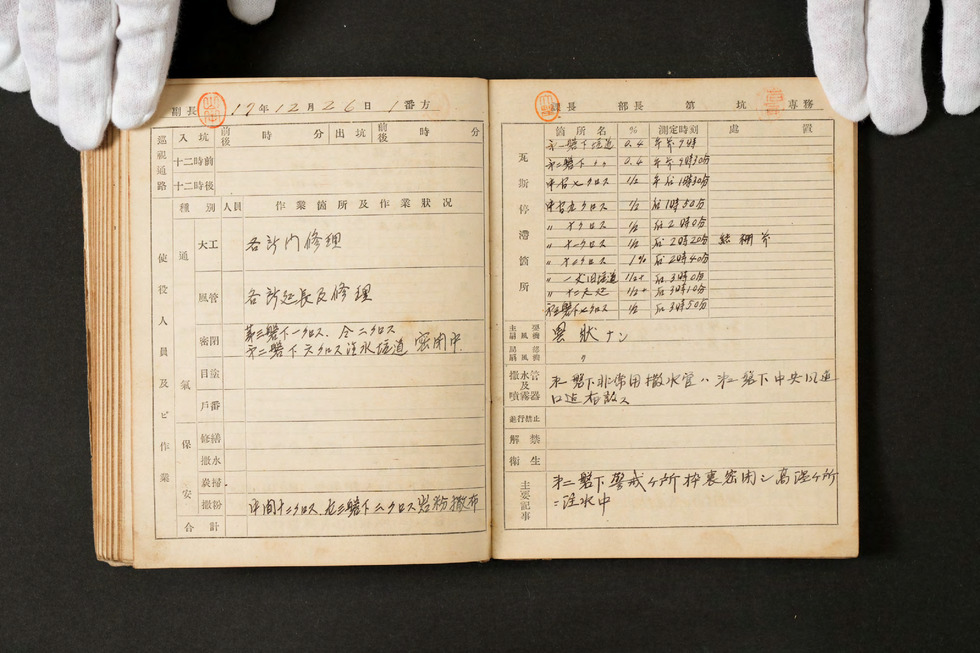 副長 17年12月26日 1番方
巡視通路 入坑 前後 時 分 出坑 前後 時 分
十二時前
十二時後
使役人員及ビ作業
種別 人員 作業箇所及作業状況
通氣
大工 各所門修理
風管 各所延長及修理
密閉 第三盤下一クロス、仝二クロス
第二盤下六クロス注水坑道 密閉中
目塗
戸番
保安
修繕
撒水
炭掃
撒粉 中間十二クロス 左三盤下ムクロス岩粉撒布
合計
長 部長 第 坑 専務
瓦斯停滞箇所
箇所名 % 測定時刻 處置
第一盤下坑道 0.4 午前9時
第二盤下 〃 0.4 午前9時30分
中右七クロス 1/2 午后1時30分
中右九クロス 1/2 后1時50分
〃 クロス 1/2 后2時0分
〃 十一クロス 1/2 后2時20分
〃 クロス 1% 后2時40分
〃 坑道 1/2+ 后3時0分
〃 1/2+ 后3時10分
第三盤下七クロス 1/2 后3時50分
主要扇風機 異状ナシ
局部扇風機 〃
撒水管及噴霧器 第一盤下非常用撒水管ハ第二盤下中央風道
口迄布設ス
進行禁止
解禁
衛生
主要記事 第二盤下警戒ヶ所枠裏密閉シ高温ヶ所
ニ注水中